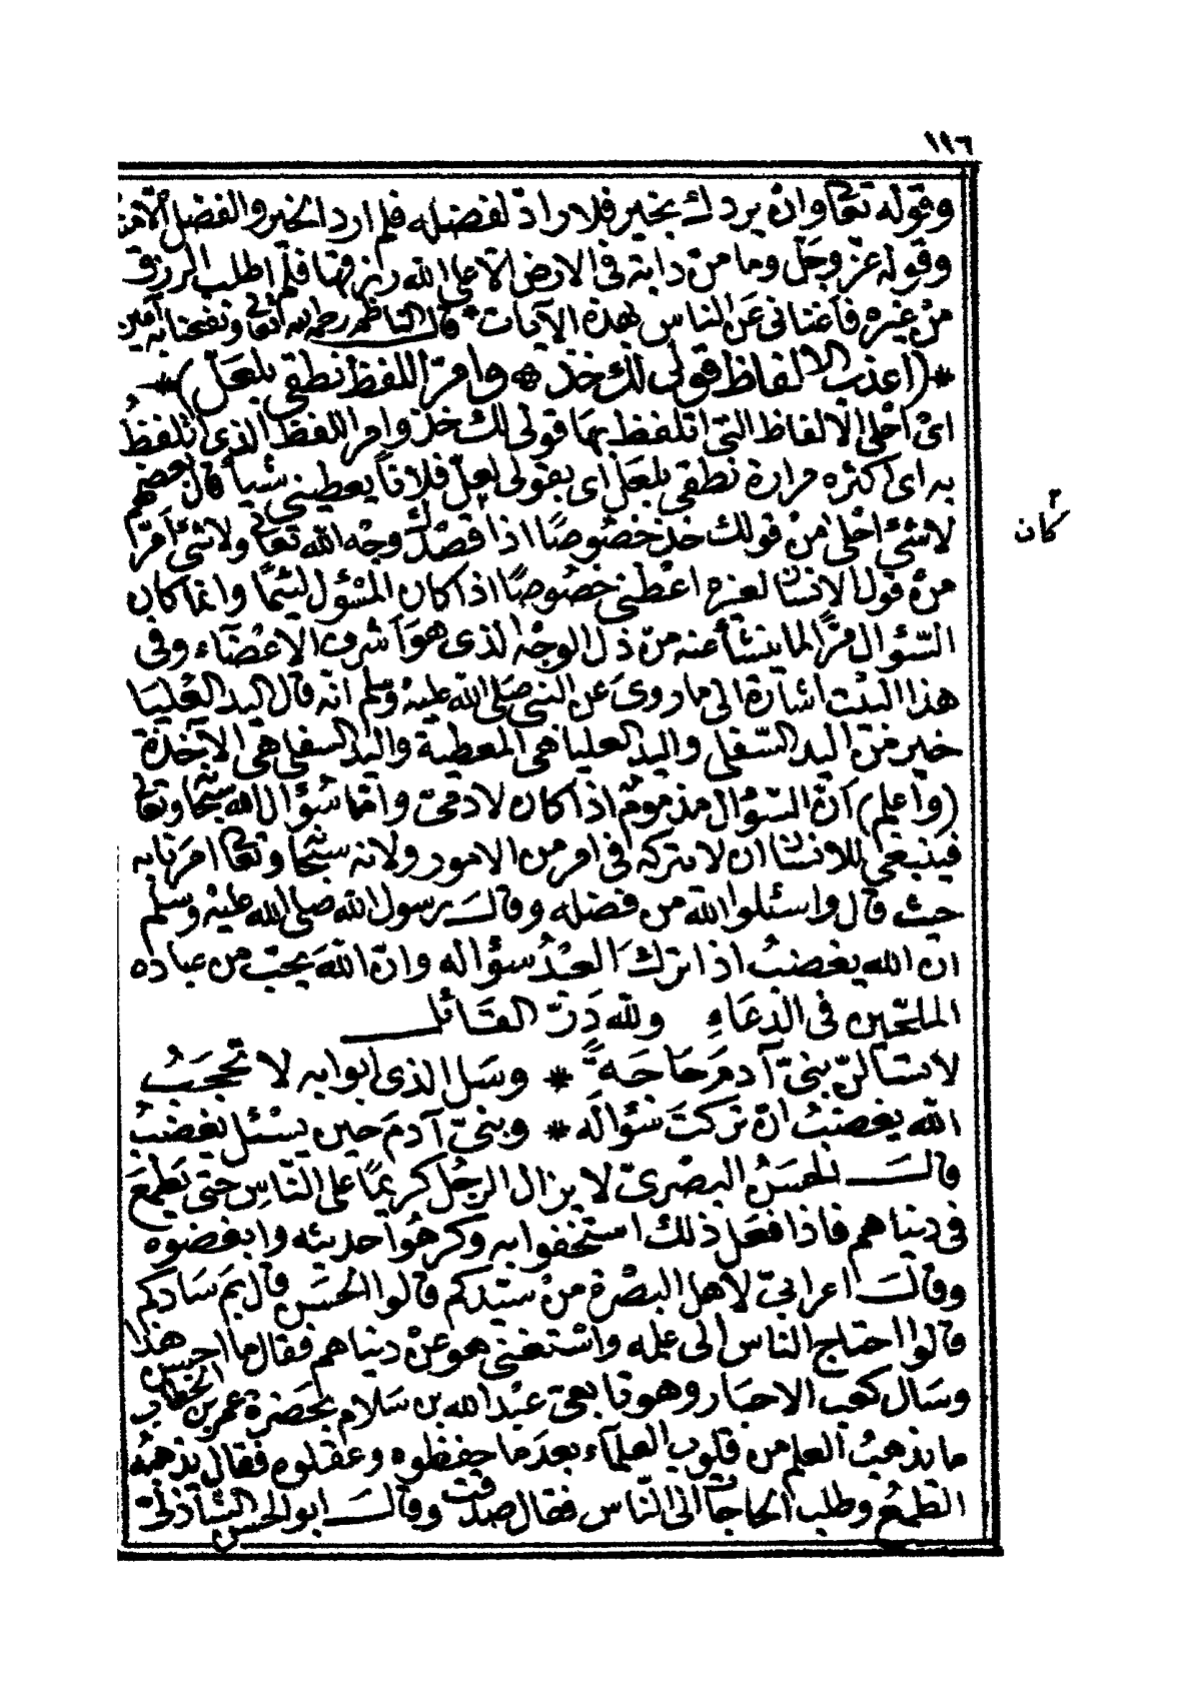 ١١٦
وقوله تعا وان يردك بخير فلا رادّ لفضله فلم ارد الخير والفضل الّا منه
وقوله عزّ وجلّ وما من دابة فى الارض الا على الله رزقها فلم اطلب الرزق
من غيره فاغنانى عن الناس بهذه الآيات * قال الناظم رحمه الله تعالى ونفعنا به آمين
*(اعذب الالفاظ قولى لك خذ * وامرّ اللفظ نطقى بلعلّ)*
اى احلى الالفاظ التى اتلفظ بها قولى لك خذ وامر اللفظ الذى اتلفظ
به اى اكثره مرارة نطقى بلعل اى بقولى لعلّ فلاناً يعطينى شيأ قال بعضهم
لا شئ احلى من قولك خذ خصوصًا اذا قصدك وجه الله تعالى ولا شئ امرّ
كان
من قول الانسان لغيره اعطنى خصوصًا اذا كان المسؤل لئيمًا وانما كان
السّؤال مرًّا لما ينشأ عنه من ذل الوجه الذى هو اشرف الاعضاء وفى
هذا البيت اشارة الى ما روى عن النبى صلى الله عليه وسلم انه قال اليد العليا
خير من اليد السّفلى واليد العليا هى المعطية واليد السفلى هى الآخذة
(واعلم) انّ السّؤال مذموم اذا كان لآدمىّ وامّا سؤال الله سبحا وتعا
فينبغى للانسان ان لا يتركه فى امر من الامور ولانه سبحا وتعا امرنا به
حيث قال واسئلوا الله من فضله وقال رسول الله صلى الله عليه وسلم
ان الله يغضب اذا ترك العبد سؤاله وانّ الله يحبّ من عباده
الملحّين فى الدّعاءِ ولله درّ القائل
لا تسألنّ بنىّ آدم حاجةً * وسل الذى ابوابه لا تحجب
الله يغضب ان تركت سؤاله * وبنىّ آدم حين يسئل يغضب
قال الحسن البصرىّ لا يزال الرجل كريمًا على النّاس حتى يطمع
فى دنياهم فاذا فعل ذلك استخفوا به وكرهوا حديثه وابغضوه
وقال اعرابىّ لاهل البصرة من سيّدكم قالوا الحسن قال بم سادكم
قالوا احتاج الناس الى علمه واستغنى هو عن دنياهم فقال ما احسن هذا
وسأل كعب الاحبار وهو تابعىّ عبد الله بن سلام بحضرة عمر بن الخطاب
ما يذهب العلم من قلوب العلمآء بعد ما حفظوه وعقلوه فقال يذهبه
الطمع وطلب الحاجات الى النّاس فقال صدقت وقال ابو الحسن الشاذلىّ